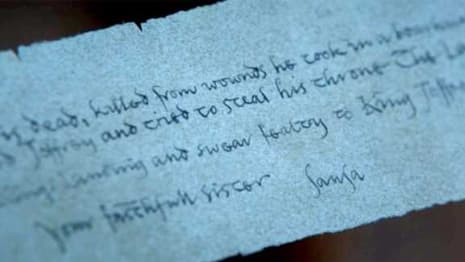 is dead, killed from wounds he took in a boar hun
d Joffrey and tried to steal his throne The La
King's Landing and swear fealty to King Joffre
your faithfull sister Sansa